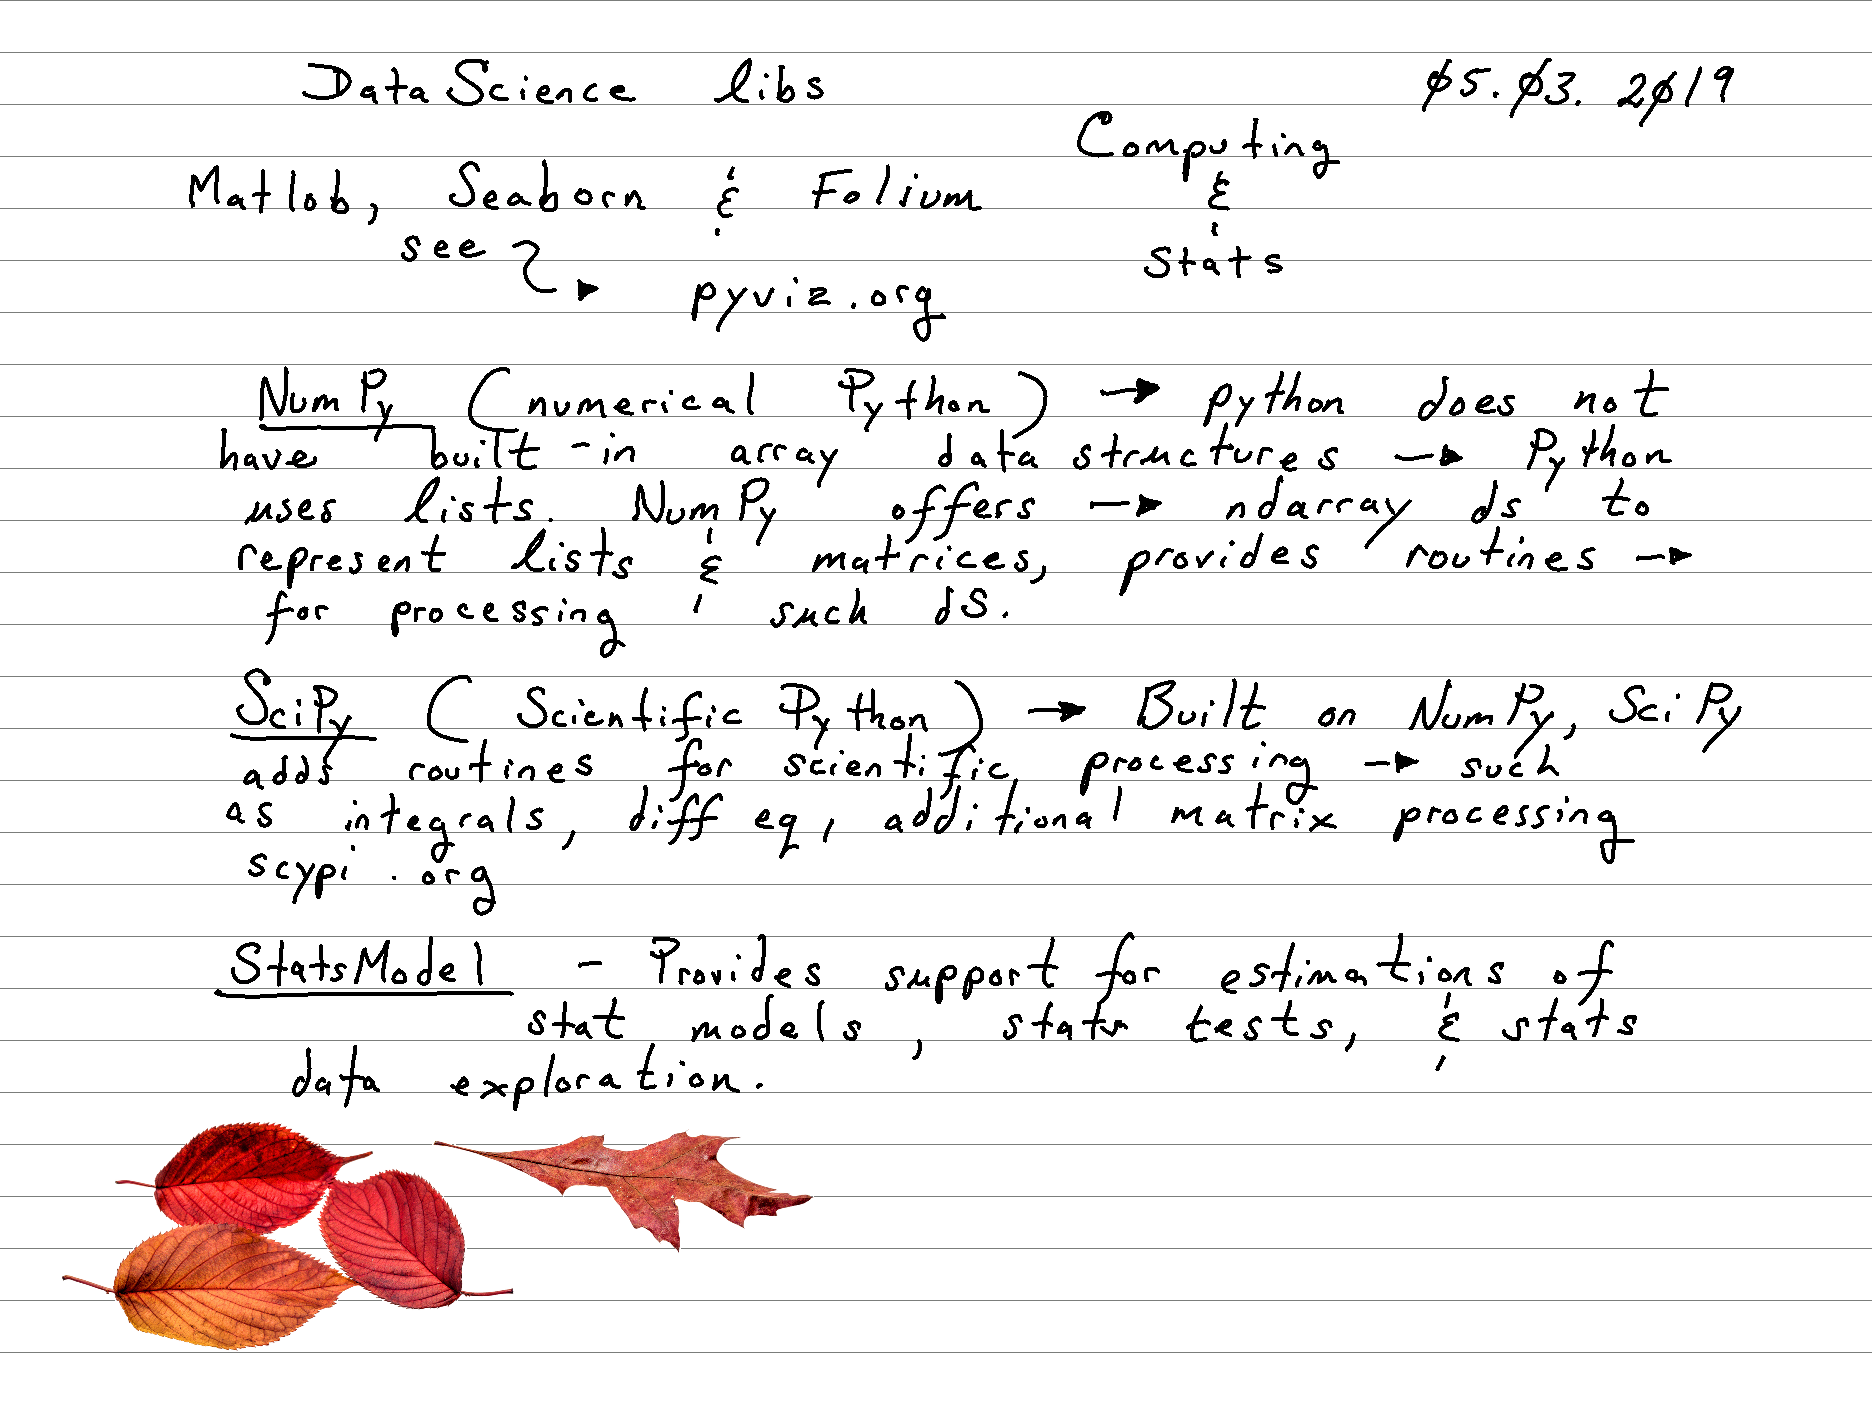 DataScience libs 05.03.2019
Computing
Matlob, Seaborn & Folium &
see Stats
pyviz.org
NumPy (numerical Python) → python does not
have built-in array data structures → Python
uses lists. NumPy offers → ndarray ds to
represent lists & matrices, provides routines →
for processing such dS.
SciPy (Scientific Python) → Built on NumPy, SciPy
adds routines for scientific processing → such
as integrals, diff eq, additional matrix processing
scypi.org
StatsModel - Provides support for estimations of
stat models, stats tests, & stats
data exploration.